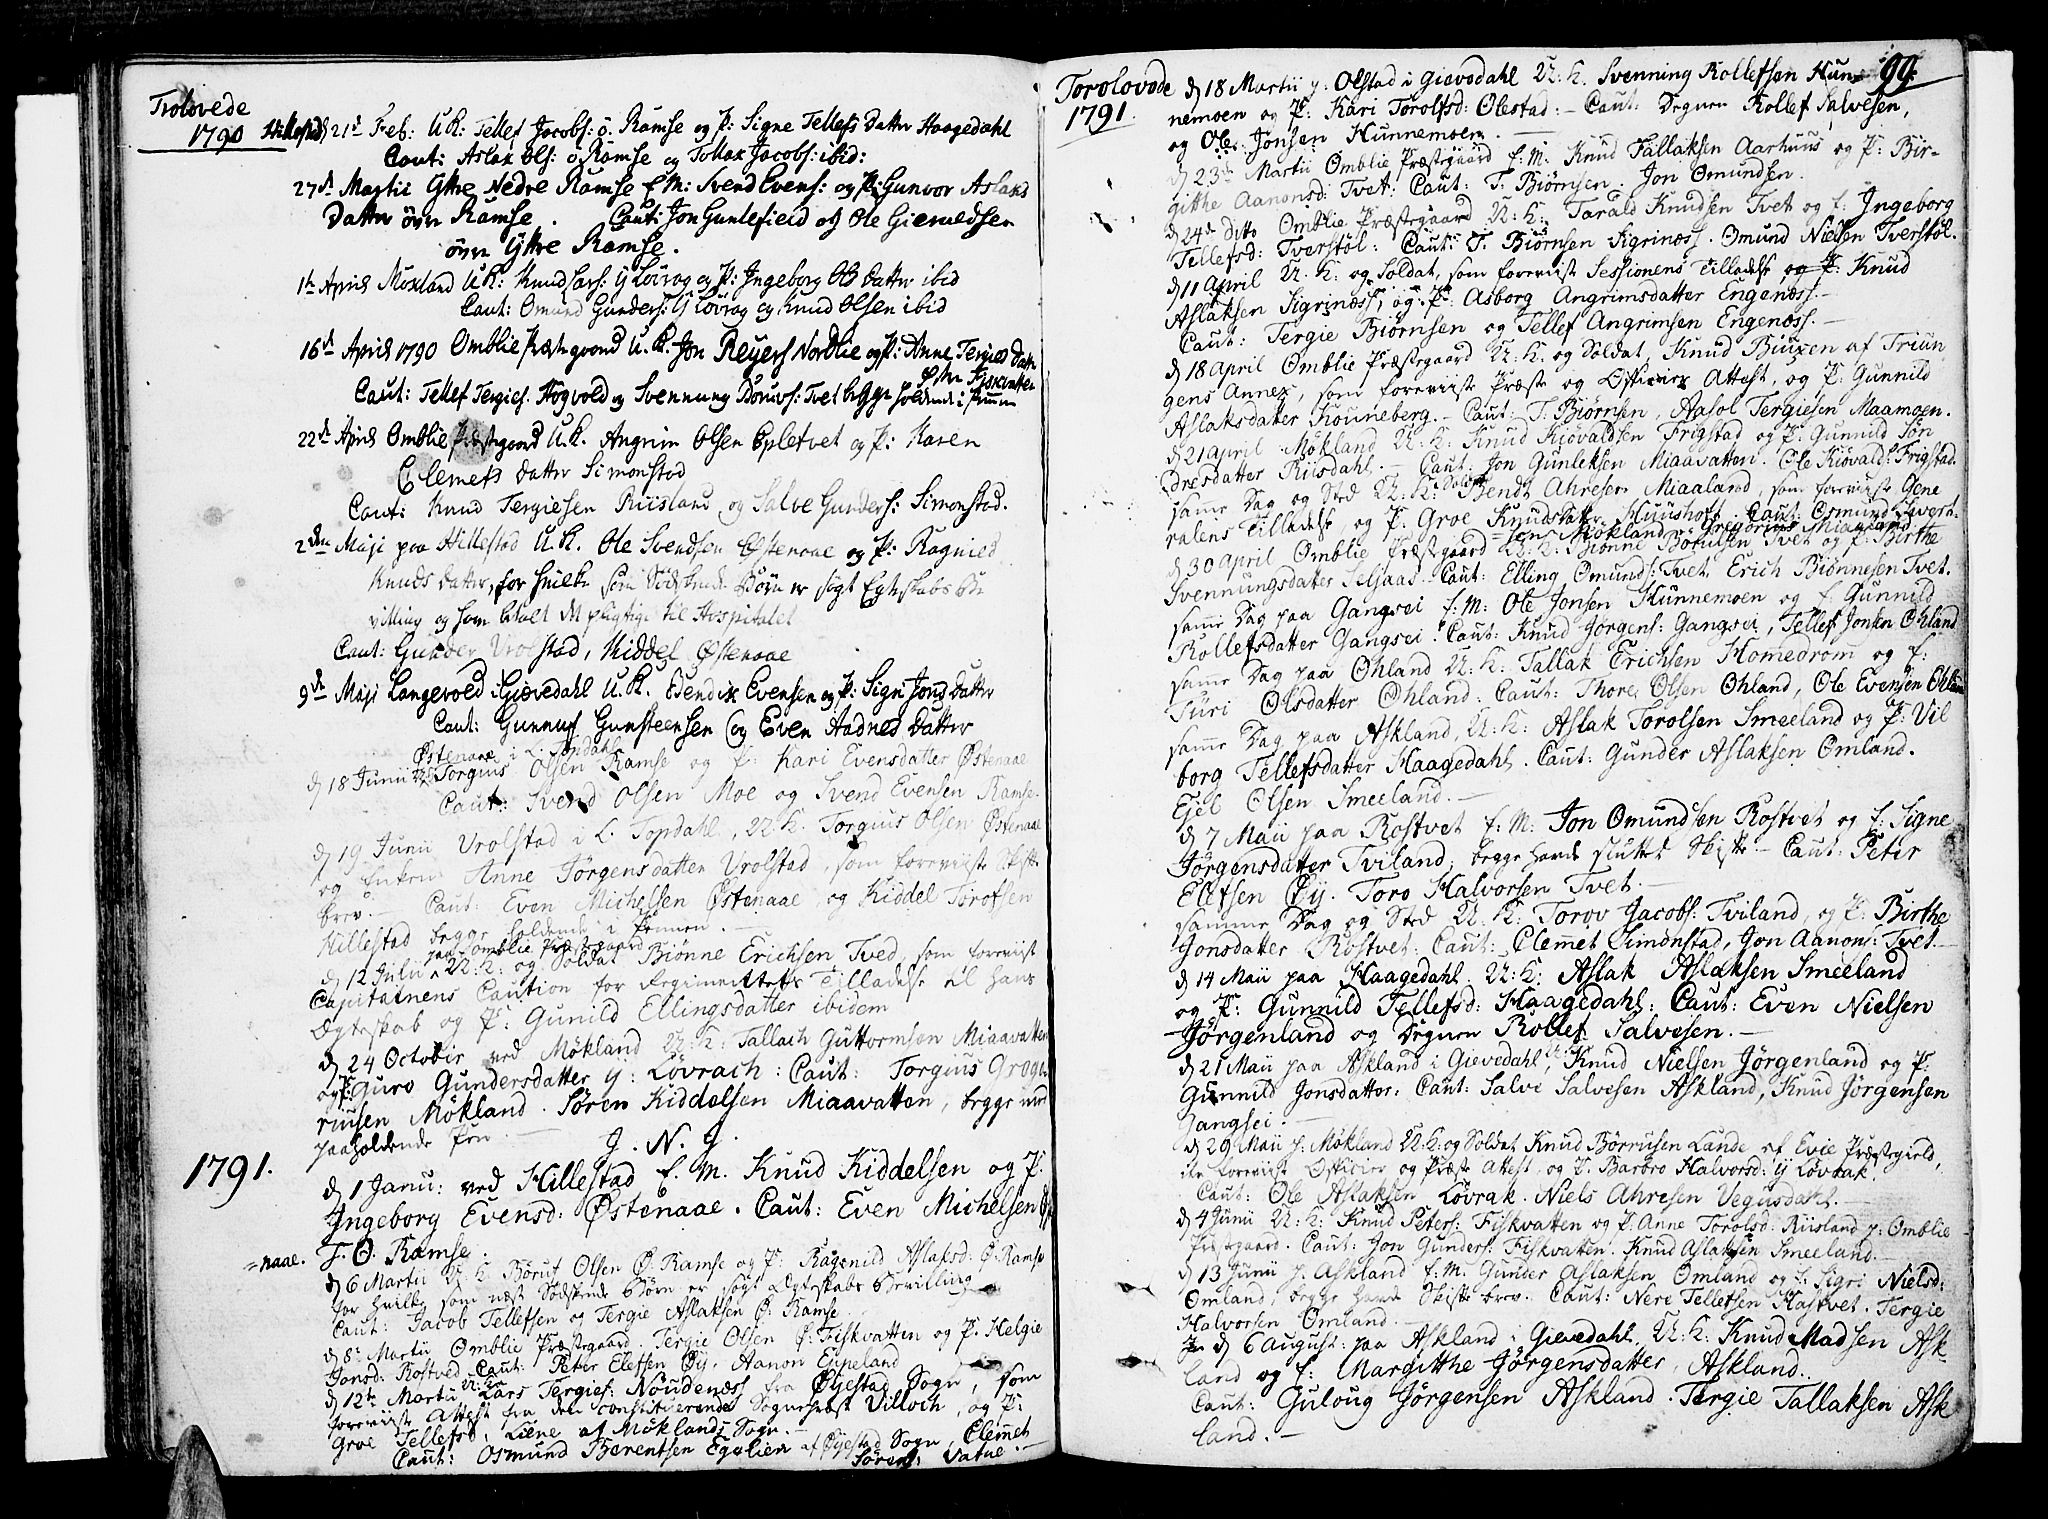 Trolovede
1790 Hillestad 21d Feb: U:K: Tellef Jacobs: ö. Ramse og P: Signe Tellefs Datter Haagedahl
Caut: Aslak Ols: ö Ramse og Tollak Jacobs: ibid:
27d Martii Ytre Nedre Ramse E: M: Svend Evens: og P: Gunvor Aslaks
Datter övre Ramse. Caut: Jon Gunlefieid og Ole Gieruldsen
övre Ytre Ramse.
1te April Moxland U:K: Knud Lars: y Lövrag og P: Ingeborg Ols Datter ibid
Caut: Omund Gunders: y Lövrag og Knud Olsen ibid
16d April 1790 Omblie Præstgaard U:K. Jon Reyers Nordlie og P: Anne Tergies Datter
Østre Fiskvatten
Caut: Tellef Tergies. Hogvold og Svennung Tveit begge holdende i Pennen
22d April Omblie Præstgaard U:K. Angrim Olsen Epletvet og P: Karen
Clemets Datter Simonstad
Caut: Knud Tergiesen Riisland og Salve Gunders: Simonstad.
2den Maji paa Hillestad U.K. Ole Svendsen Østenaae og P: Ragnild
Knuds Datter, for hvilke som Södskende Börn er sögt Egteskabs Be
villing og som betalt det pligtige til Hospitalet
Caut: Gunder Vrolstad, Kiddel Østenaae
9d Maji Langevold i Giævedahl U.K. Bendix Evensen og P: Signi Jons Datter
Caut: Gunnuf Gunsteensen og Even Aadnes Datter
Østenaae i L. Topdahl
d 18 Junii U:K: Torgius Olsen Ramse og P: Kari Evensdatter Østenaae
Caut: Svend Olsen Moe og Svend Evensen Ramse.
d 19 Junii Vrolstad i L. Topdahl, U:K. Torgius Olsen Østenaae
og Enken Anne Jörgensdatter Vrolstad, som foreviiste Skifte
brev. - Caut: Even Michelsen Østenaae, og Kiddel Torofsen
Hillestad begge holdende i Pennen. -
paa Omblie Præstegaard
d 12 Julii U:K: og Soldat Biönne Erichsen Tved, som foreviist
Capitainens Caution for Regimentets Tilladelse til hans
Ægteskab og P: Gunild Ellingsdatter ibidem
d 24 Octobir ved Mökland U:K: Tallach Guttormsen Miaavatten
og P: Guro Gundersdatter y: Lövrach: Caut: Torgius Grego
riusen Mökland. Sören Kiddelsen Miaavatten, begge med
paaholdende Pen. - J. N. J.
1791. d 1 Janu: ved Hillestad E. M. Knud Kiddelsen og P.
Ingeborg Evensd: Østenaae. Caut: Even Michelsen Øste
=naae. T. O. Ramse.
d 6 Martii U:K Börut Olsen Ø: Ramse og P: Ragenild Aslaksd: Ø. Ramse
for hvilke som næst Södskende Börn er sögt Ægteskabs Bevilling
Caut: Jacob Tellefsen og Tergie Aslaksen Ø. Ramse.
d 8: Martii Omblie Præstegaard. Tergie Olsen Ø: Fiskvatten og P. Helgie
Jonsd: Rostved. Caut: Peter Elefsen Øy. Aanon Espeland
d 12te Martii U:K Lars Tergies: Noudenæss fra Øyestad Sogn, som
foreviiste Attest fra den constituerende Sognepræst Villoch, og P:
Groe Tellefsd. Liene af Möklands Sogn. -
Caut: Osmund Berentsen Egelien af Øyestad Sogn, Clemet
Sörens: Vatne. -
Torolovede 1791. d 18 Martii y: Olstad i Gievedahl U:K. Svenning Rollefsen Hun= 99.
nemoen og P: Kari Torolfsd: Olestad: - Caut: Degnen Rollef Salvesen,
og Ole Jonsen Hunnemoen. -
d 23de Martii Omblie Præstgaard E: M: Knud Tallaksen Aarhuus og P: Bir-
githe Aanonsd: Tvet: Caut: T. Biørnsen. Jon Omundsen.
d 24de Dito Omblie Præstgaard U:K: Tarald Knudsen Tvet og E: Ingeborg
Tellefsd: Tverstöl: Caut: T. Biørnsen Sigrinæss. Omund Nielsen Tverstöl.
d 11 April U:K: og Soldat, som foreviist Sessionens Tilladelse og P: Knud
Aslaksen Sigrinæss, og P: Asborg Angrimsdatter Engenæss. -
Caut: Tergie Biørnsen og Tellef Angrimsen Engenæss. -
d 18 April Omblie Præstegaard U:K. og Soldat, Knud Biuxen af Triun
gens Annex, som foreviiste Præste og Officier Attest, og P: Gunnild
Aslaksdatter Kouneberg. - Caut: T. Biørnsen, Aasol Tergiesen Maamoen.
d 21 April Mökland U:K: Knud Kiövaldsen Frigstad og P: Gunnild Sön
dresdatter Riisdahl. - Caut: Jon Gunleksen Miaavatten. Ole Kiövalds: Frigstad.
samme Dag og Sted U:K: Soldat Bendt Ahresen Miaaland, som foreviiste Gene
ralens Tilladelse og P: Groe Knudsdatter Huushoft. Caut: Osmund Sivert-
=sen Mökland, Gregorius Miaaland
d 30 April Omblie Præstgaard U:K: Biönne Börulsen Tvet og P: Birthe
Svennungsdatter Seljaas. Caut: Elling Omunds: Tvet. Erich Biönnesen Tvet.
samme Dag paa Gangsei E: M: Ole Jonsen Hunnemoen og E: Gunnild
Rollefsdatter Gangsei. Caut: Knud Jörgens: Gangsei, Tellef Jonsen Ohland
samme Dag paa Ohland U:K: Tallak Erichsen Homedrom og E:
Turi Olsdatter Ohland: Caut: Thore Olsen Ohland, Ole Evensen Ohland
samme Dag paa Askland, U:K: Aslak Torolsen Smeeland og P: Vil
borg Tellefsdatter Haagedahl. Caut: Gunder Aslaksen Omland.
Ejel Olsen Smeeland. -
d 7 Maii paa Rostvet E: M: Jon Omundsen Rostvet og E: Signe
Jörgensdatter Tviland, begge havde sluttet Skifte - Caut: Peter
Elefsen Øij. Toro Halvorsen Tvet. -
samme Dag og Sted U:K: Torov Jacobs: Tviland, og P: Birthe
Jonsdatter Rostvet. Caut: Clemet Simonstad, Jon Aanons: Tvet. -
d 14 Maii paa Haagedahl. U:K: Aslak Aslaksen Smeeland
og P: Gunnild Tellefsd: Haagedahl: Caut: Even Nielsen
Jörgenland og Degnen Rollef Salvesen. -
d 21 Maii paa Askland i Gievedahl, U:K: Knud Nielsen Jörgenland og P:
Gunnild Jonsdatter: Caut: Salve Salvesen Askland, Knud Jörgensen
Gangsei. -
d 29 Maii p. Mökland U:K: og Soldat Knud Börrusen Lande af Evie Præstegield,
der foreviist Officier og Præste Attest, og P. Barbro Halvorsd: y Lövrak.
Caut: Ole Aslaksen Lövrak. Niels Ahresen Vegusdahl. -
d 4 Junii U:K: Knud Peters: Fiskvatten og P: Anne Torolsd: Riisland p: Omblie
Præstgaard. Caut: Jon Gunders: Fiskvatten. Knud Aslaksen Smeeland. -
d 13 Junii p. Askland E: M. Gunder Aslaksen Omland og E. Sigri Niels d:
Omland, begge havde Skifte brev. Caut: Nere Tellefsen Hastvet. Tergie
Halvorsen Omland. -
d 6 August: paa Askland i Gievedahl, U:K: Knud Madsen Ask-
land og E: Margitthe Jörgensdatter, Askland.
Caut: Guloug Jörgensen Askland. Tergie Tallaksen Ask
land. -